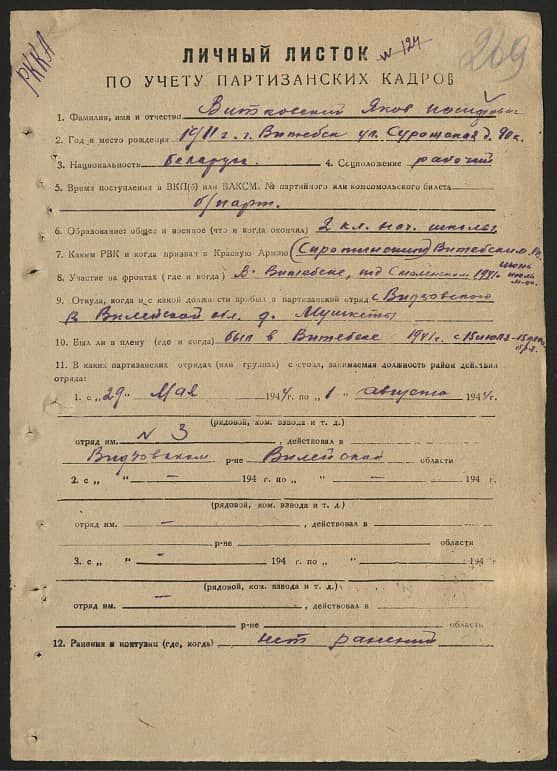 РККА
№ 124
269
ЛИЧНЫЙ ЛИСТОК
ПО УЧЕТУ ПАРТИЗАНСКИХ КАДРОВ
1. Фамилия, имя и отчество Витковский Яков
2. Год и место рождения 1911 г. г. Витебск ул. Сурожская д.
3. Национальность беларус. 4. Соцположение рабочий
5. Время поступления в ВКП(б) или ВЛКСМ. № партийного или комсомольского билета
б/парт.
6. Образование: общее и военное (что и когда окончил) 2 кл. нач. школы
7. Каким РВК и когда призван в Красную Армию (Сиротинским) Витебским
8. Участие на фронтах (где и когда) В. Витебске, под Смоленском 1941 г. июнь июль
9. Откуда, когда и с какой должности прибыл в партизанский отряд с Видзовского
Вилейской обл. д.
10. Был ли в плену (где и когда) был в Витебске 1941 г. с 15 июля
11. В каких партизанских отрядах (или группах) состоял, занимаемая должность район действия
отряда:
1. с „29“ Мая 1944 г. по „1“ августа 1944 г.
(рядовой, ком. взвода и т. д.)
отряд им. N 3, действовал в
Видзовском р-не Вилейской области
2. с „ “ — 194 г. по „ “ — 194 г.
(рядовой, ком. взвода и т. д.)
отряд им. —, действовал в
р-не — области
3. с „ “ — 194 г. по „ “ 194 г.
(рядовой, ком. взвода и т. д.)
отряд им. —, действовал в
р-не области
12. Ранения и контузии (где, когда) нет ранений